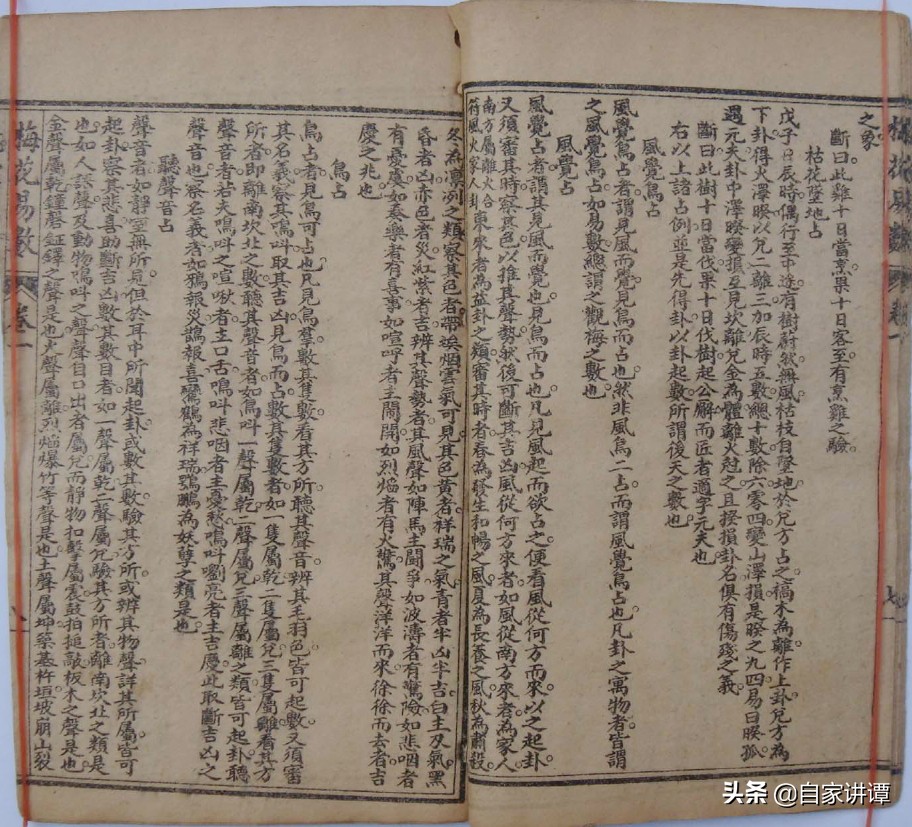 之象
斷曰此雞十日當烹果十日客至有烹雞之驗
枯花墜地占
戊子日辰時偶行至中途有樹蔚然無風枯枝自墜地於兌方占之槁木為離作上卦兌方為
下卦得火澤睽以兌二離三加辰時五數總十數除六零四變山澤損是睽之九四易曰睽孤
遇元夫卦中澤睽變損互見坎離兌金為體離火尅之且睽損卦名俱有傷殘之義
斷曰此樹十日當伐果十日伐樹起公廨而匠者適字元夫也
右以上諸占例並是先得卦以卦起數所謂後天之數也
風覺鳥占
風覺鳥占者謂見風而覺見鳥而占也然非風鳥二占而謂風覺鳥占也凡卦之寓物者皆謂
之風覺鳥占如易數總謂之觀梅之數也
風覺占
風覺占者謂其見風而覺也見鳥而占也凡見風起而欲占之便看風從何方而來以之起卦
又須審其時察其色以推其聲勢然後可斷其吉凶風從何方來者如風從南方來者為家人
南方屬離火合得風火家人卦東來者為益卦之類審其時者春為發生和暢之風夏為長養之風秋為肅殺
冬為凛冽之類察其色者帶埃烟雲氣可見其色黃者祥瑞之氣青者半凶半吉白主刃氣黑
昏者凶赤色者災紅紫者吉辨其聲勢者其風聲如陣馬主鬪爭如波濤者有驚險如悲咽者
有憂虞如奏樂者有喜事如喧呼者主鬧鬨如烈焰者有火驚其聲洋洋而來徐徐而去者吉
慶之兆也
鳥占
鳥占者見鳥可占也凡見鳥羣數其隻數看其方所聽其聲音辨其毛羽色皆可起數又須審
其名義察其鳴叫取其吉凶見鳥而占數其隻數者如一隻屬乾二隻屬兌三隻屬離看其方
所者即離南坎北之數聽其聲音者如鳥叫一聲屬乾二聲屬兌三聲屬離之類皆可起卦聽
聲音者若夫鳴叫之喧啾者主口舌鳴叫悲咽者主憂愁鳴叫嘹亮者主吉慶此取斷吉凶之
聲音也察名義者如鴉報災鵲報喜鸞鶴為祥瑞鶚鵬為妖孽之類是也
聽聲音占
聲音者如靜室無所見但於耳中所聞起卦或數其數驗其方所或辨其物聲詳其所屬皆可
起卦察其悲喜助斷吉凶數其數目者如一聲屬乾二聲屬兌驗其方所者離南坎北之類是
也如人語聲及動物鳴叫之聲聲自口出者屬兌而靜物扣擊屬震鼓拍搥敲板木之聲是也
金聲屬乾鐘磬鉦鐸之聲是也火聲屬離烈焰爆竹等聲是也土聲屬坤築基杵垣坡崩山裂
梅花易數
卷一
八
七
头条 @自家讲谭